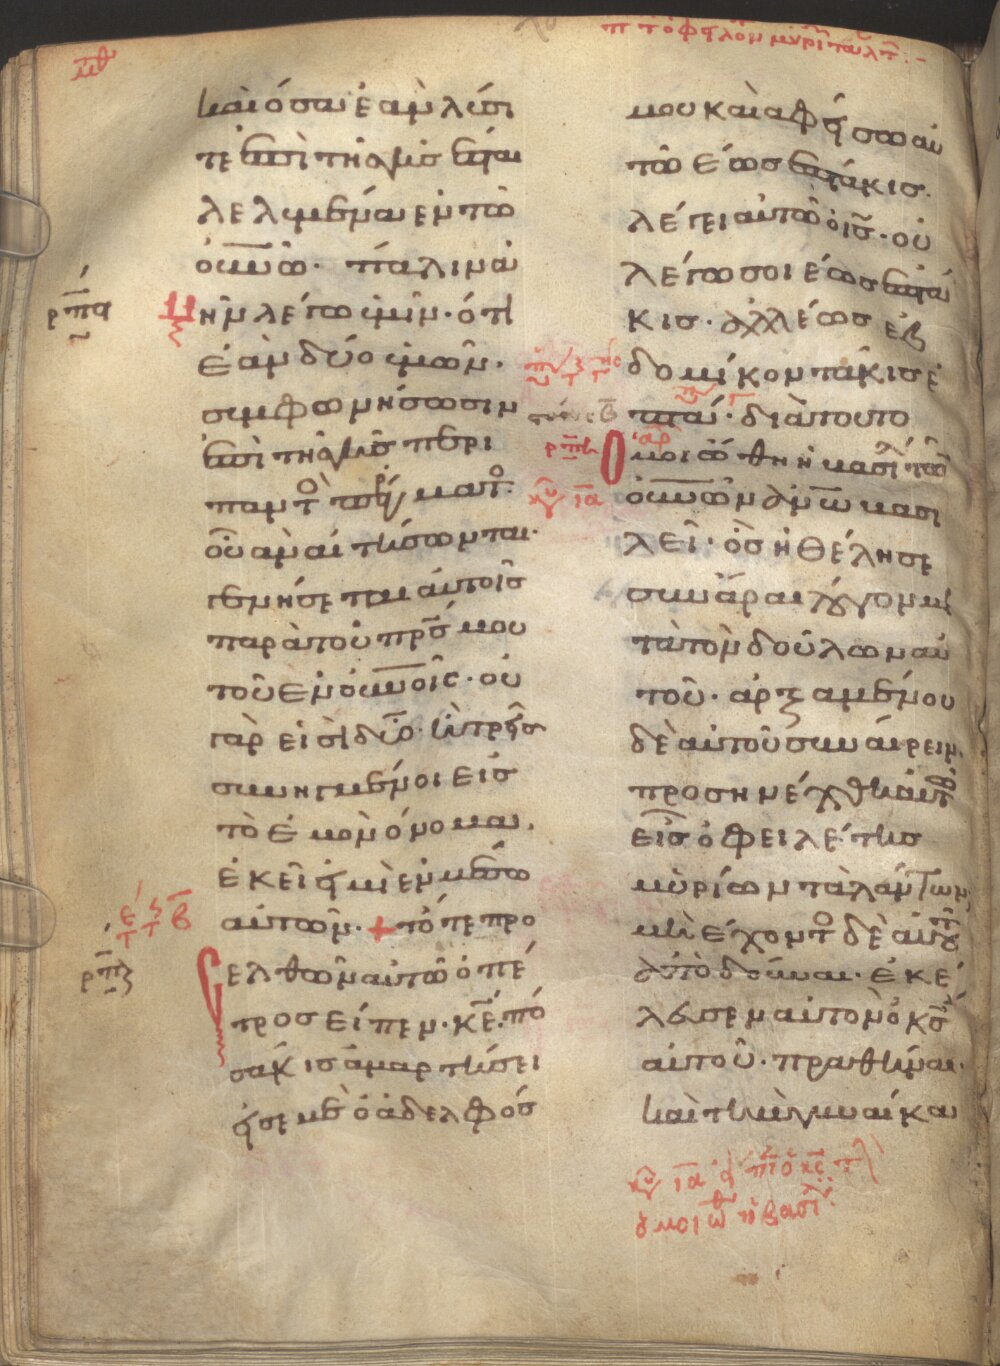 π τ ὀφειλον μυρι ταλτ :-
μθ
καὶ ὅσα ἐὰν λύση
τε ἐπὶ τῆς γῆς ἔσται
λελυμένα ἐν τῶ
οὐνῶ· πάλιν ἀ
ρπα
μὴν λέγω ὑμῖν· ὅτι
ἐὰν δύο ὑμῶν·
συμφωνήσωσιν
ἐπὶ τῆς γῆς περὶ
παντὸ πράγματο·
οὗ ἂν αἰτήσωνται·
γενήσεται αὐτοῖς
παρὰ τοῦ πρς μου
τοῦ ἐν οὐνοῖς· οὗ
γάρ εἰσὶ δύο· ἢ τρεῖς
συνηγμένοι εἰς
τὸ ἐμὸν ὄνομα,
ἐκεῖ εἰμὶ ἐν μέσω
αὐτῶν· + τότε προ
ρπ
ελθὼν αὐτῶ ὁ πέ
τρος εἶπεν· κε· πο
σάκις ἁμαρτήσει
εἰς ἐμὲ ὁ ἀδελφός
μου καὶ ἀφήσω αὐ
τῶ ἕως ἑπτάκις·
λέγει αὐτῶ ὁ ις· οὐ
λέγω σοι ἕως ἑπτά
κις· ἀλλ' ἕως ἑβ
δομήκοντάκις ἑ
πτά· διὰ τοῦτο
ρπβ
ὁμοιώθη ἡ βασιλ τῶ
οὐνῶν ἀνω βασι
κυ ια
λεῖ· ὃς ἠθέλησε
συνᾶραι λόγον με
τὰ τὸν δούλων αὐ
τοῦ· ἀρξαμένου
δὲ αὐτοῦ συναίρειν·
προσηνέχθη αὐτω
εἷς ὀφειλέτης
μυρίων ταλάντων·
μὴ ἔχοντο δὲ αὐτοῦ
ἀποδοῦναι· ἐκέ
λευσεν αὐτὸν ὁ κς
αὐτοῦ· πραθῆναι·
καὶ τὴν γυναίκα
κυ ια ει πο κς τ
ὁμοιωθ ἡ βασιλ